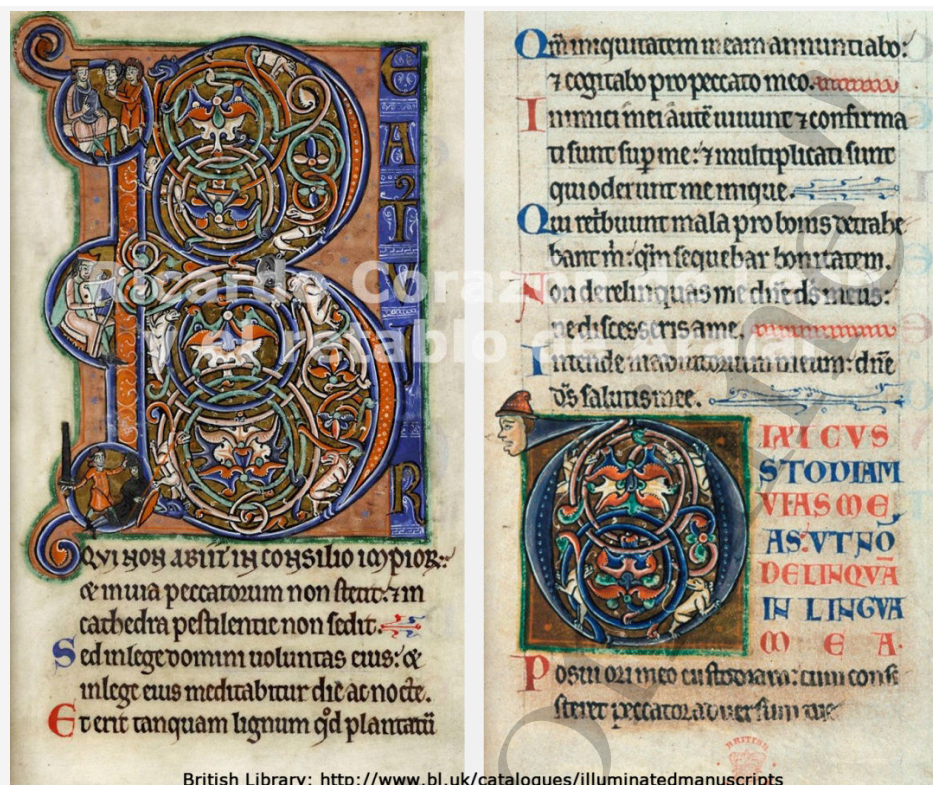 EATVSVIR
QVI NON ABIIT IN CONSILIO IMPIOR:
& in uia peccatorum non stetit: ⁊ in
cathedra pestilentie non sedit.
Sed in lege domini uoluntas eius: &
in lege eius meditabitur die ac nocte.
Et erit tanquam lignum qd̄ plantatū
Qm̄ iniquitatem meam annuntiabo:
⁊ cogitabo pro peccato meo.
Inimici mei autē uiuunt ⁊ confirma
ti sunt sup me: ⁊ multiplicati sunt
qui oderunt me inique.
Qui retbuunt mala pro bonis detrahe
bant m̄: qm̄ sequebar bonitatem.
Non derelinquas me dn̄e ds̄ meus:
ne discesseris a me.
Intende in adiutorium meum: dn̄e
ds̄ salutis mee.
DIXI CVS
STODIAM
VIAS ME
AS: VT NŌ
DELINQVĀ
IN LINGVA
MEA.
Posui ori meo custodiam: cum consi
steret peccator aduersum me
Ricardo Corazón de León
y el retablo
BRITISH
British Library: http://www.bl.uk/catalogues/illuminatedmanuscripts